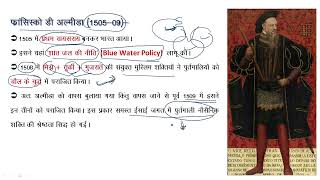 फ्रांसिस्को डी अल्मीडा (1505-09)
1505 में प्रथम वायसराय बनकर भारत आया।
इसने यहां शांत जल की नीति (Blue Water Policy) लागू की।
1508 में मिस्र + तुर्की + गुजरात की संयुक्त मुस्लिम शक्तियों ने पुर्तगालियों को
चौल के युद्ध में पराजित किया।
अतः अल्मीडा को वापस बुलाया गया किंतु वापस जाने से पूर्व 1509 में इसने
इन तीनों को पराजित किया। इस प्रकार समस्त ईसाई जगत में पुर्तगाली नौसैनिक
शक्ति की श्रेष्ठता सिद्ध हो गई।